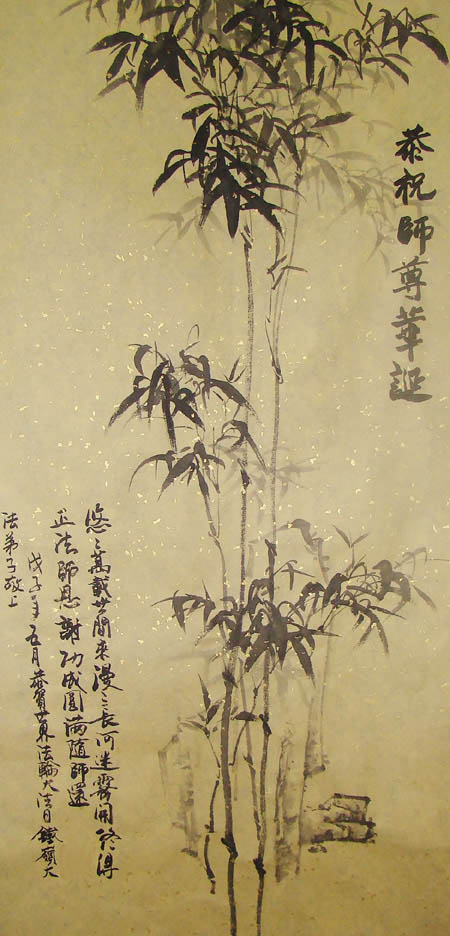 恭祝師尊華誕
悠〻萬載世間來漫〻長河迷霧開終得
正法師恩謝功成圓滿隨師還
戊子年五月恭賀世界法輪大法日鐵嶺大
法弟子敬上